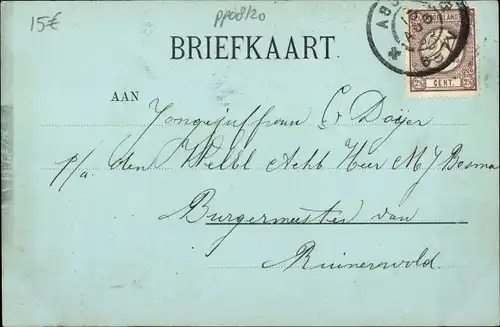 15€
pp08/20
BRIEFKAART.
NEDERLAND
CENT.
AAN Jongejuffrouw C v Doijer
p/a. den WelEd Achtb Heer M J Bosma
Burgermeester van
Ruinerwold.